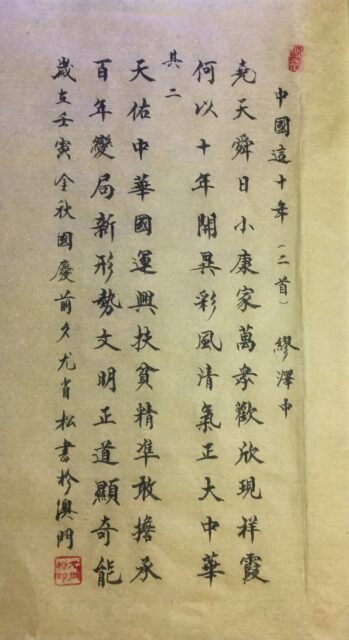 中國這十年（二首） 繆澤中
堯天舜日小康家萬眾歡欣現祥霞
何以十年開異彩風清氣正大中華
其二
天佑中華國運興扶貧精準敢擔承
百年變局新形勢文明正道顯奇能
歲在壬寅金秋國慶前夕尤肖松書於澳門